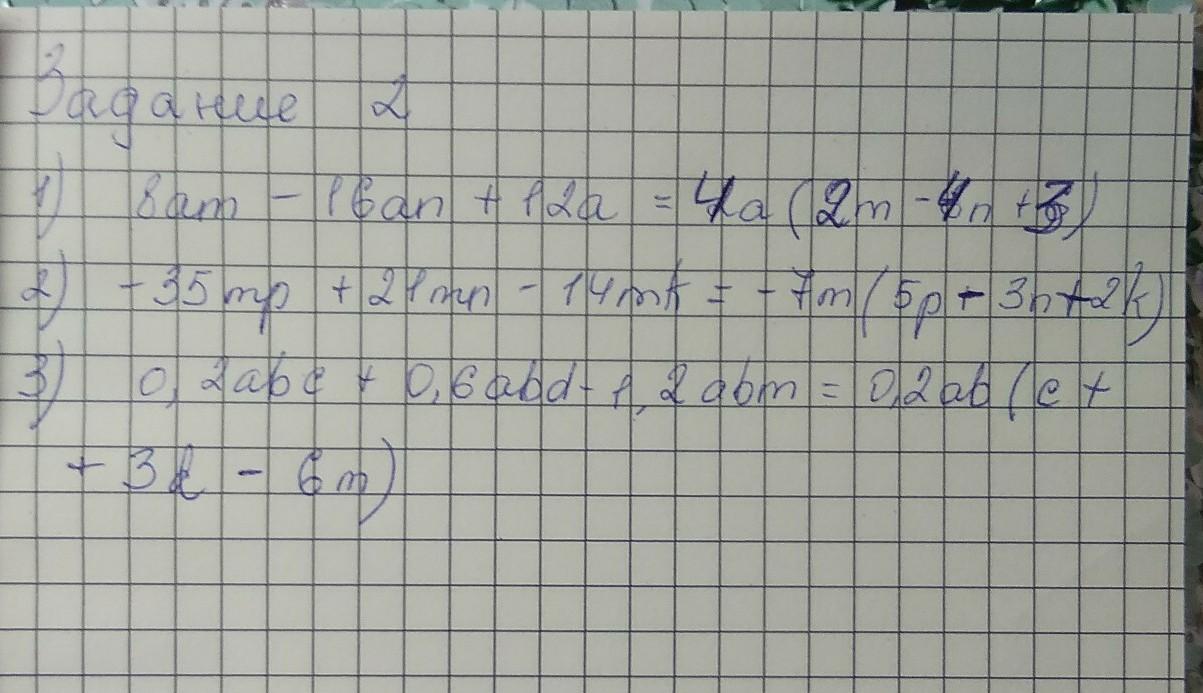 Задание 2
1) 8am - 16an + 12a = 4a (2m - 4n + 3)
2) -35mp + 21mn - 14mk = -7m (5p - 3n + 2k)
3) 0,2abc + 0,6abd - 1,2abm = 0,2ab (c +
+ 3d - 6m)